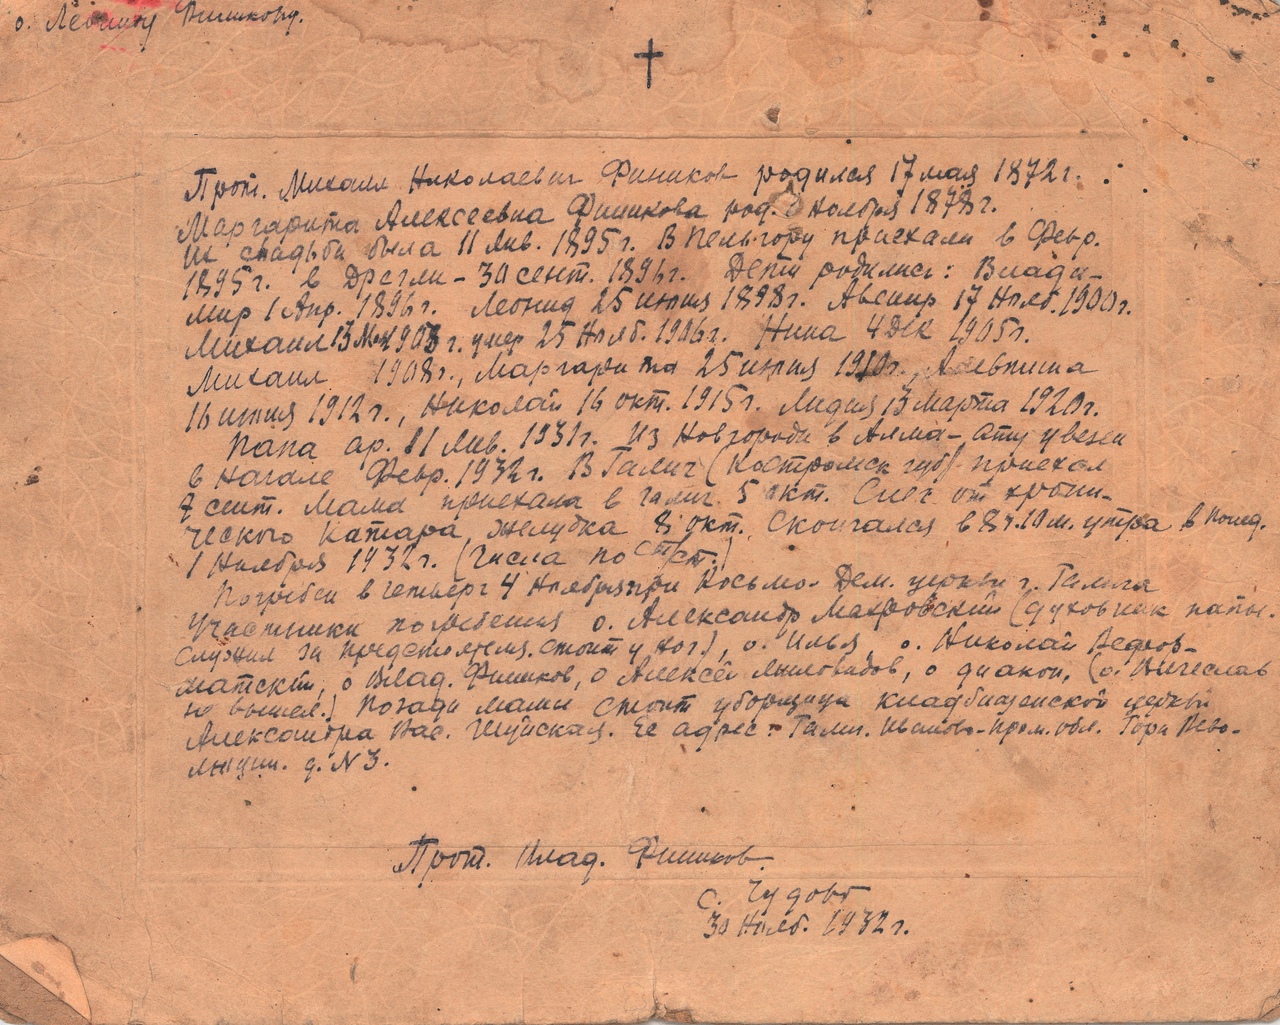 о. Леониду Финикову.
Прот. Михаил Николаевич Фиников родился 17 мая 1872 г.
Маргарита Алексеевна Финикова род. ноября 1878 г.
Их свадьба была 11 Янв. 1895 г. В Пельгору приехали в Февр.
1895 г. в Дрегли - 30 сент. 1896 г. Дети родились: Влади-
мир 1 Апр. 1896 г. Леонид 25 июня 1898 г. Авенир 17 Нояб. 1900 г.
Михаил 13 Мая 1903 г. умер 25 Нояб. 1906 г. Нина 4 Дек 1905 г.
Михаил 1908 г., Маргарита 25 июня 1910 г., Алевтина
16 июня 1912 г., Николай 16 окт. 1915 г. Лидия 13 Марта 1920 г.
Папа ар. 11 Янв. 1931 г. Из Новгорода в Алма-Ату увезен
в начале Февр. 1932 г. В Галич (Костромск губ) приехал
7 сент. Мама приехала в Галич 5 окт. Слег от хрони-
ческого катара желудка 8 окт. Скончался в 8 ч. 10 м. утра в понед.
1 Ноября 1932 г. (Числа по ст/ст.)
Погребен в четверг 4 Ноября при Косьмо-Дем. церкви г. Галича
Участники погребения о. Александр Махровский (духовник папы.
Служил за предстоятеля. стоит у ног), о. Илья, о. Николай
о Влад. Фиников, о Алексей о диакон, (о. Вячеслав
не вышел.) Позади мамы стоит уборщица кладбищенской церкви
Александра Вас. Шуйская. Ее адрес: Галич. Иваново-Пром. обл. Гора Рево-
люции. д. N 3.
Прот. Влад. Фиников.
с. Чудово
30 Нояб. 1932 г.